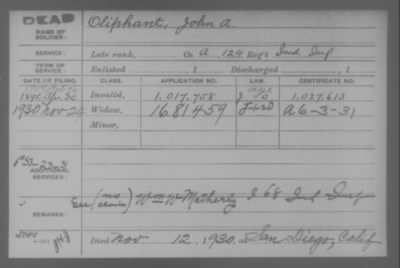 DEAD
NAME OF SOLDIER: Oliphant, John A.
SERVICE: Late rank, Co. A, 124 Reg't Ind Inf
TERM OF SERVICE: Enlisted , 1 Discharged , 1
DATE OF FILING. CLASS. APPLICATION NO. LAW. CERTIFICATE NO.
Apr. 30 Invalid, 1.017.758 1.027.613
1930 Nov-24 Widow, 1681459 A6-3-31
Minor,
ADDITIONAL SERVICES:
See (no claim) Wm W Matherly I 68 Ind Inf
REMARKS:
Died Nov 12, 1930, San Diego, Calif